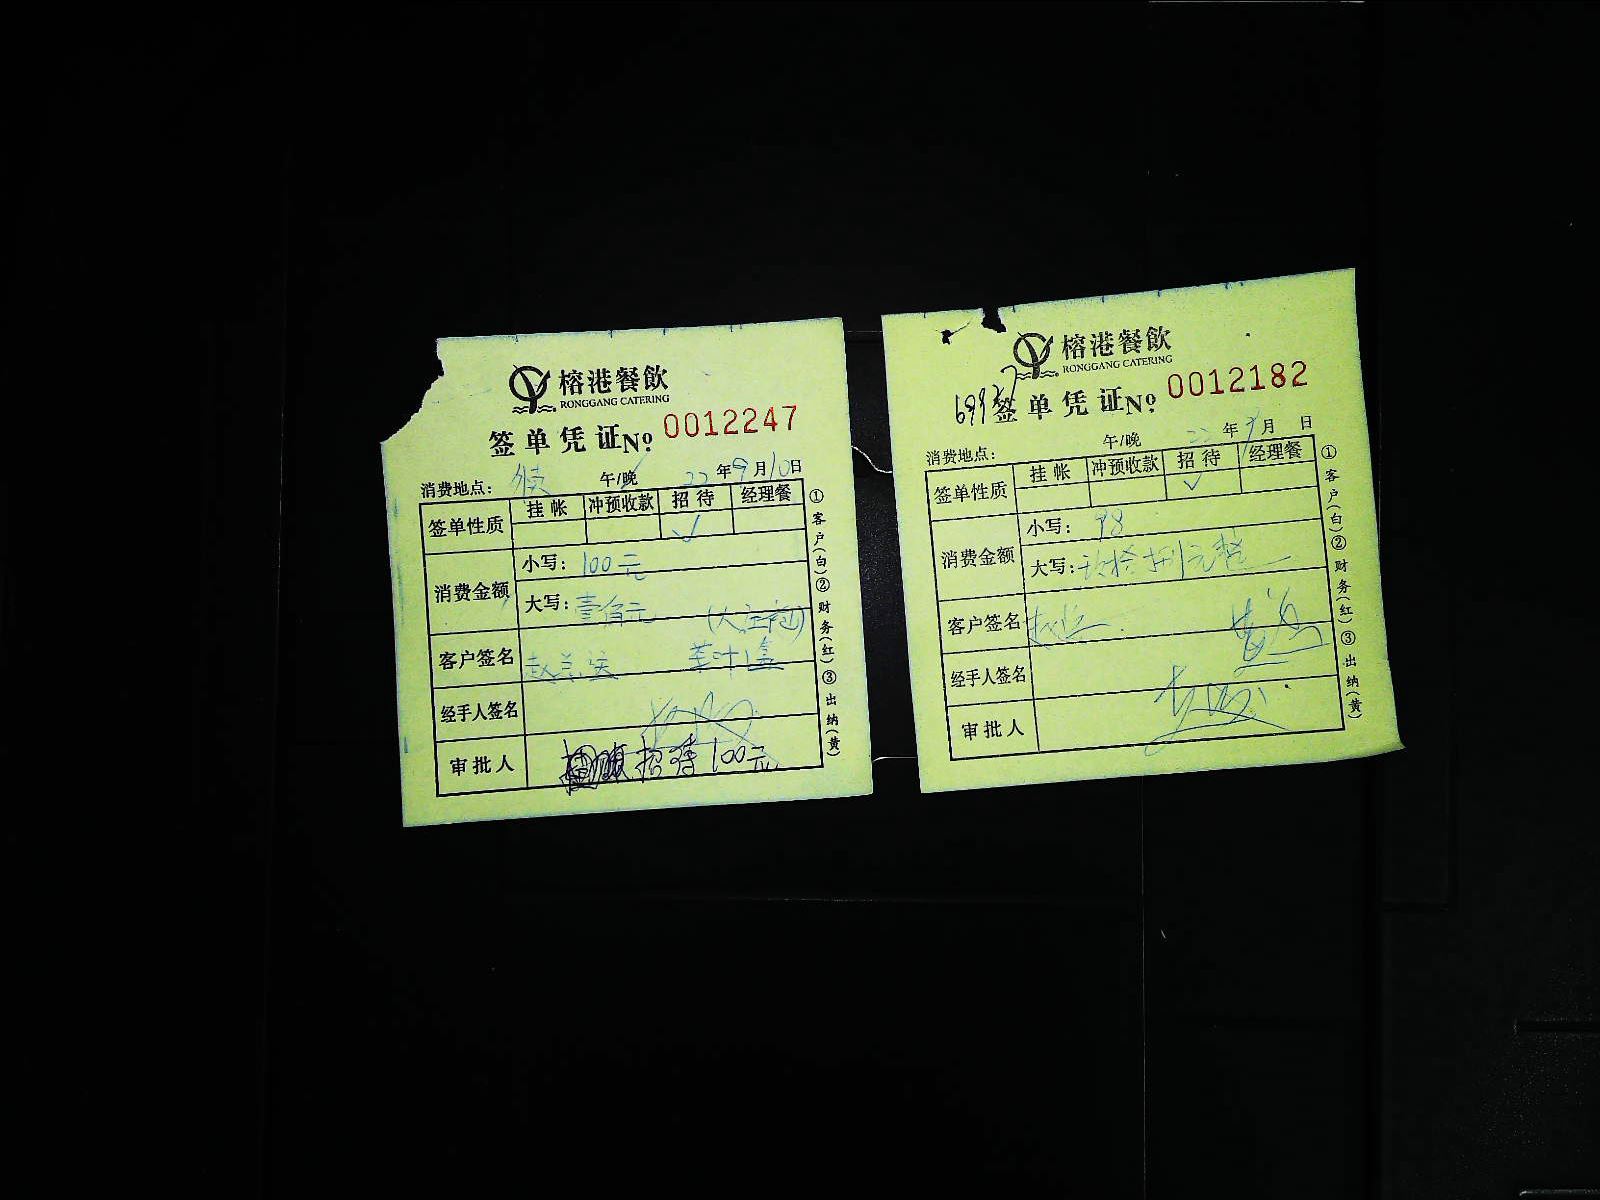 榕港餐飲
RONGGANG CATERING
签单凭证No. 0012247
消费地点: 午/晚 22年9月10日
签单性质 挂帐 冲预收款 招待 经理餐
✓
消费金额 小写: 100元
大写: 壹佰元
客户签名 赵总送 茶叶1盒
经手人签名
审批人 招待100元
①客户(白)②财务(红)③出纳(黄)
榕港餐飲
RONGGANG CATERING
签单凭证No. 0012182
消费地点: 午/晚 22年9月 日
签单性质 挂帐 冲预收款 招待 经理餐
✓
消费金额 小写: 98
大写: 玖拾捌元整
客户签名
经手人签名
审批人
①客户(白)②财务(红)③出纳(黄)